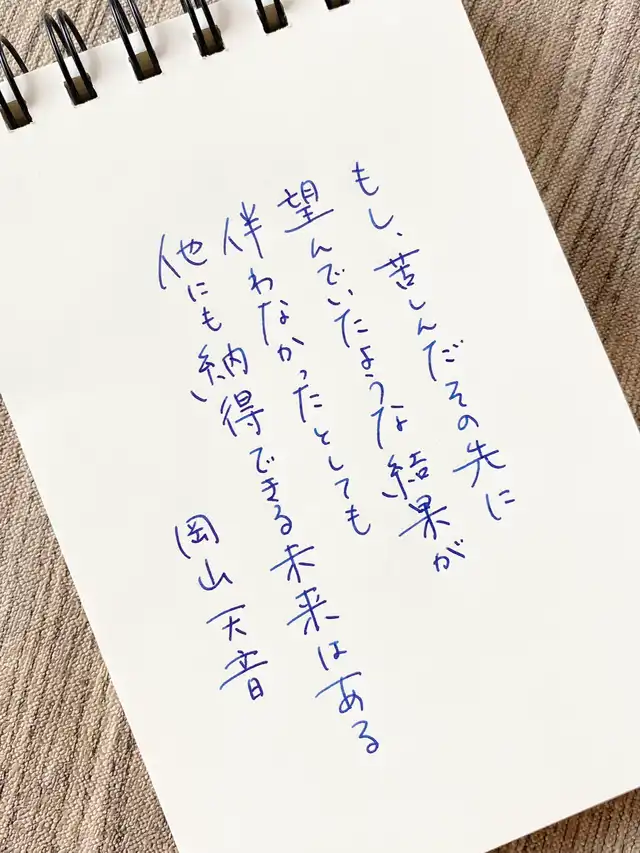 もし、苦しんだその先に
望んでいたような結果が
伴わなかったとしても
他にも納得できる未来はある
岡山天音